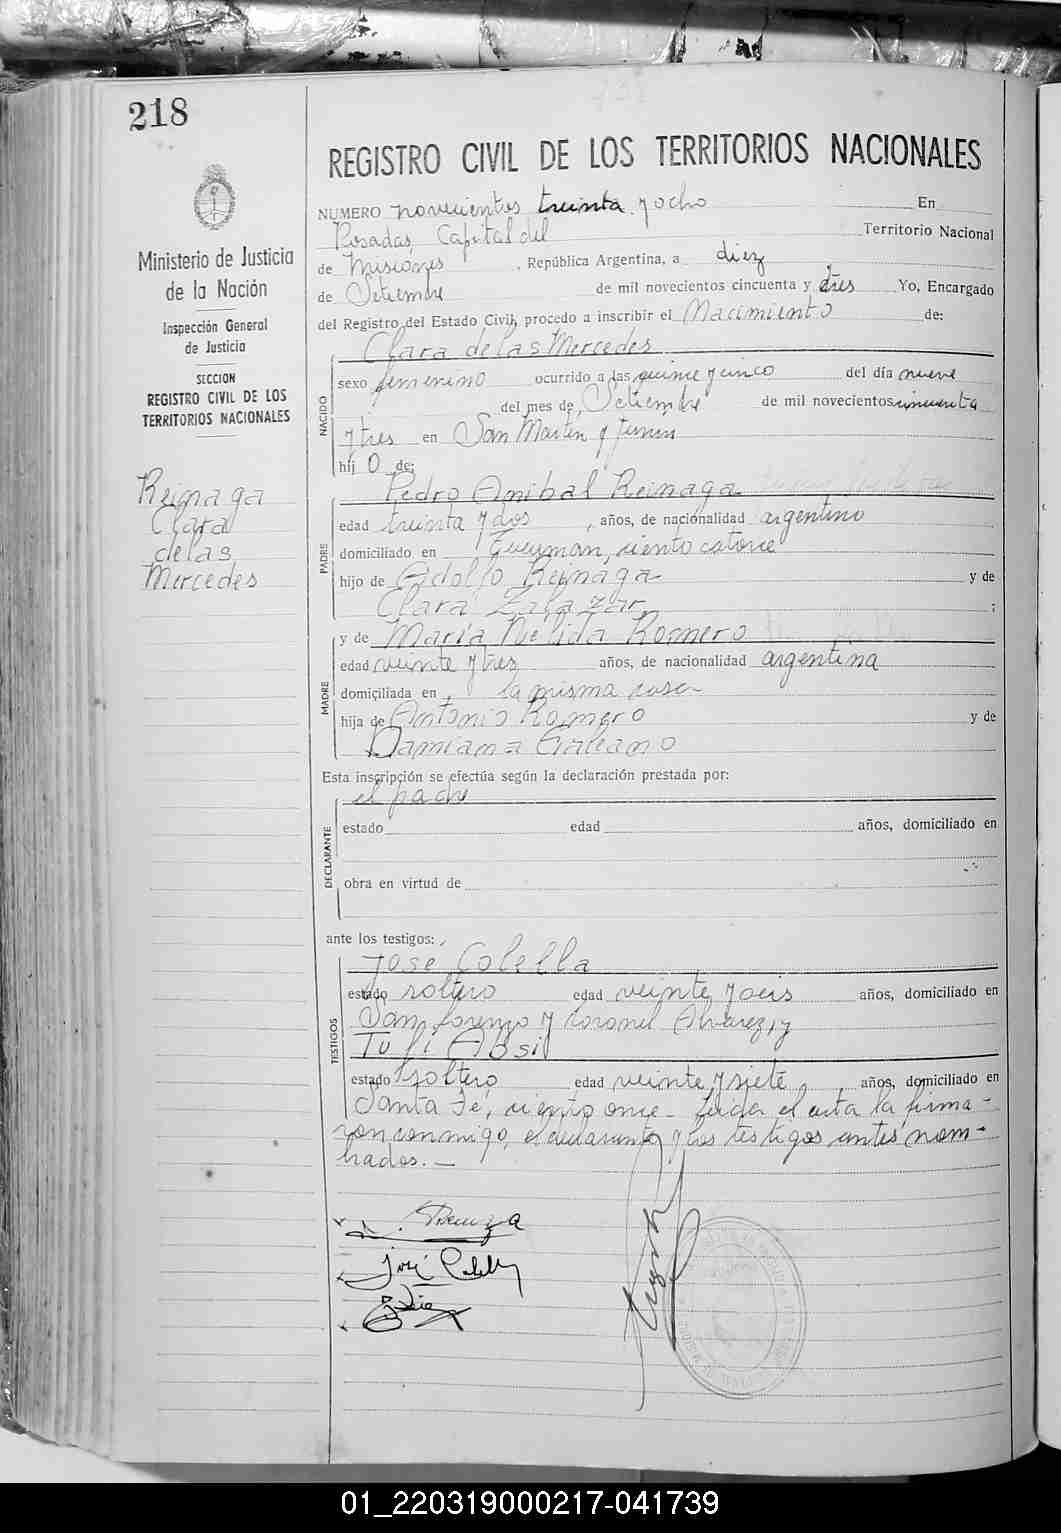 218
REGISTRO CIVIL DE LOS TERRITORIOS NACIONALES
Ministerio de Justicia
de la Nación
Inspección General
de Justicia
SECCION
REGISTRO CIVIL DE LOS
TERRITORIOS NACIONALES
Reinaga
Clara
de las
Mercedes
NUMERO novecientos treinta y ocho En
Posadas, Capital del Territorio Nacional
de Misiones, República Argentina, a diez
de Setiembre de mil novecientos cincuenta y tres Yo, Encargado
del Registro del Estado Civil, procedo a inscribir el Nacimiento de:
NACIDO
Clara de las Mercedes
sexo femenino ocurrido a las quince y cinco del día nueve
del mes de Setiembre de mil novecientos cincuenta
y tres en San Martin y Junin
hij o de:
PADRE
Pedro Anibal Reinaga
edad treinta y dos, años, de nacionalidad argentino
domiciliado en Tucuman, ciento catorce
hijo de Adolfo Reinaga y de
Clara Zalazar ;
MADRE
y de María Nelida Romero
edad veinte y tres años, de nacionalidad argentina
domiciliada en la misma casa
hija de Antonio Romero y de
Damiana Galeano
Esta inscripción se efectúa según la declaración prestada por:
DECLARANTE
el padre
estado edad años, domiciliado en
obra en virtud de
ante los testigos:
TESTIGOS
José Colella
estado soltero edad veinte y seis años, domiciliado en
San Lorenzo y Coronel Alvarez, y
Tufi Absi
estado soltero edad veinte y siete, años, domiciliado en
Santa Fé, ciento once- Leida el acta la firma-
ron conmigo, el declarante y los testigos antes nom-
brados.-
José Colella
01_220319000217-041739